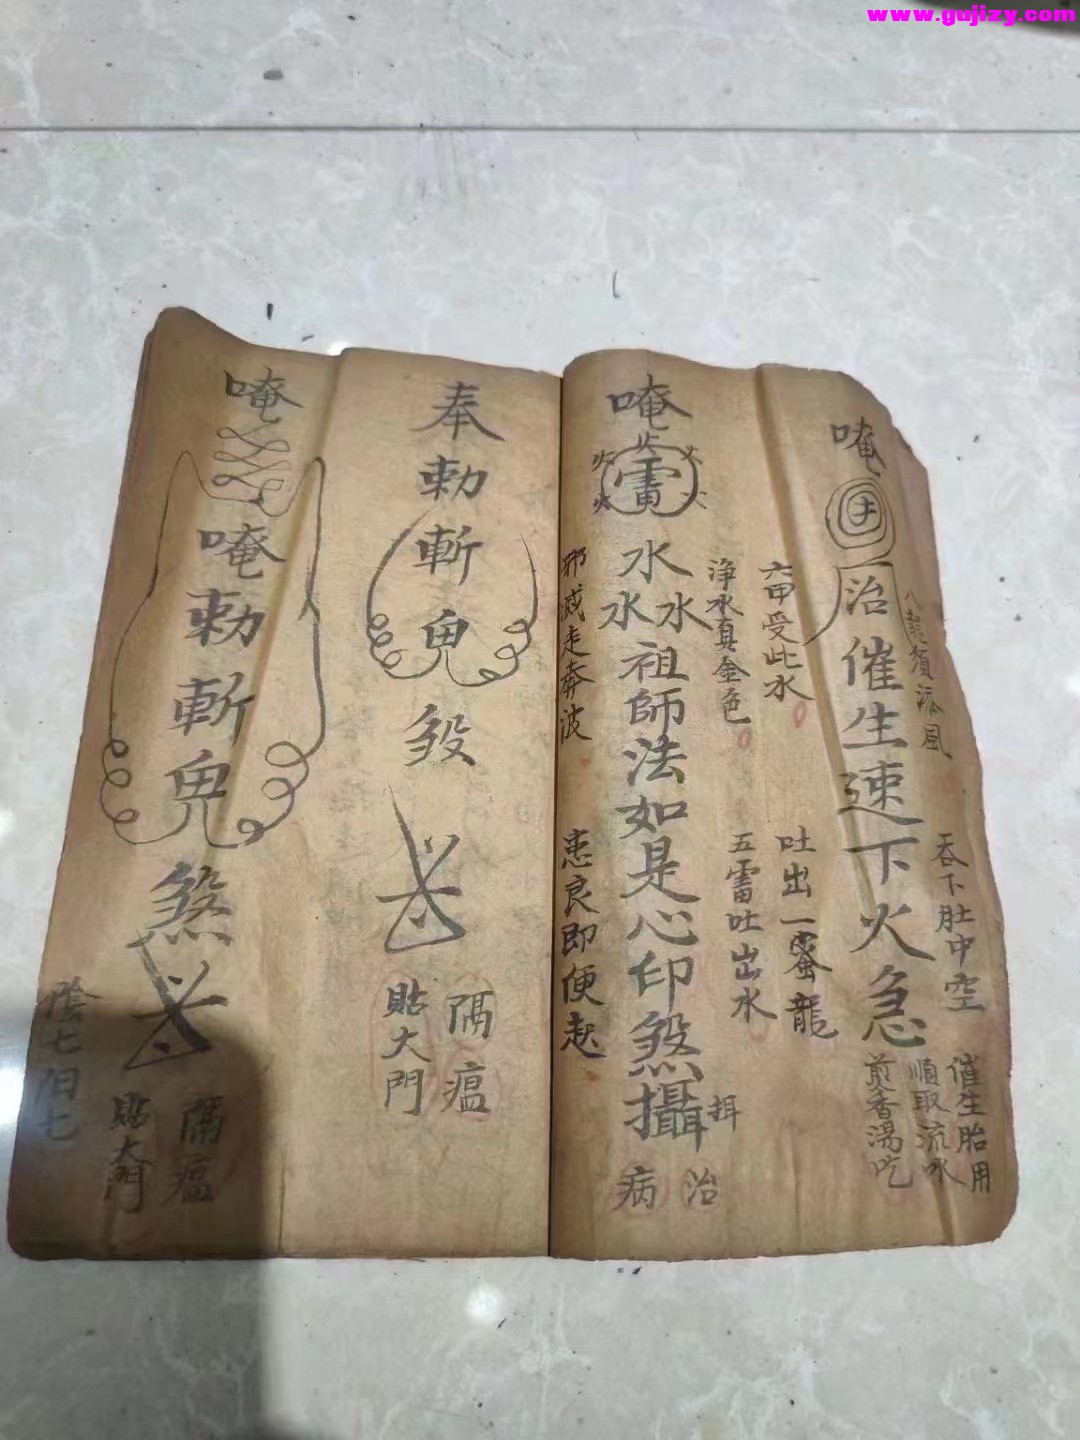 www.gujizy.com
八龍須添風
吞下肚中空
唵
治催生速下火急
催生胎用
順取流水
煎香湯吃
六甲受此水
吐出一蜜龍
淨水真金色
五雷吐出水
唵
火火火火火
雷
水
水水
祖師法如是心印煞攝
治
病
邪滅走奔波
患良即便起
奉勅斬鬼
隔瘟
貼大門
唵
唵勅斬鬼煞
隔瘟
貼大門
陰七陽七